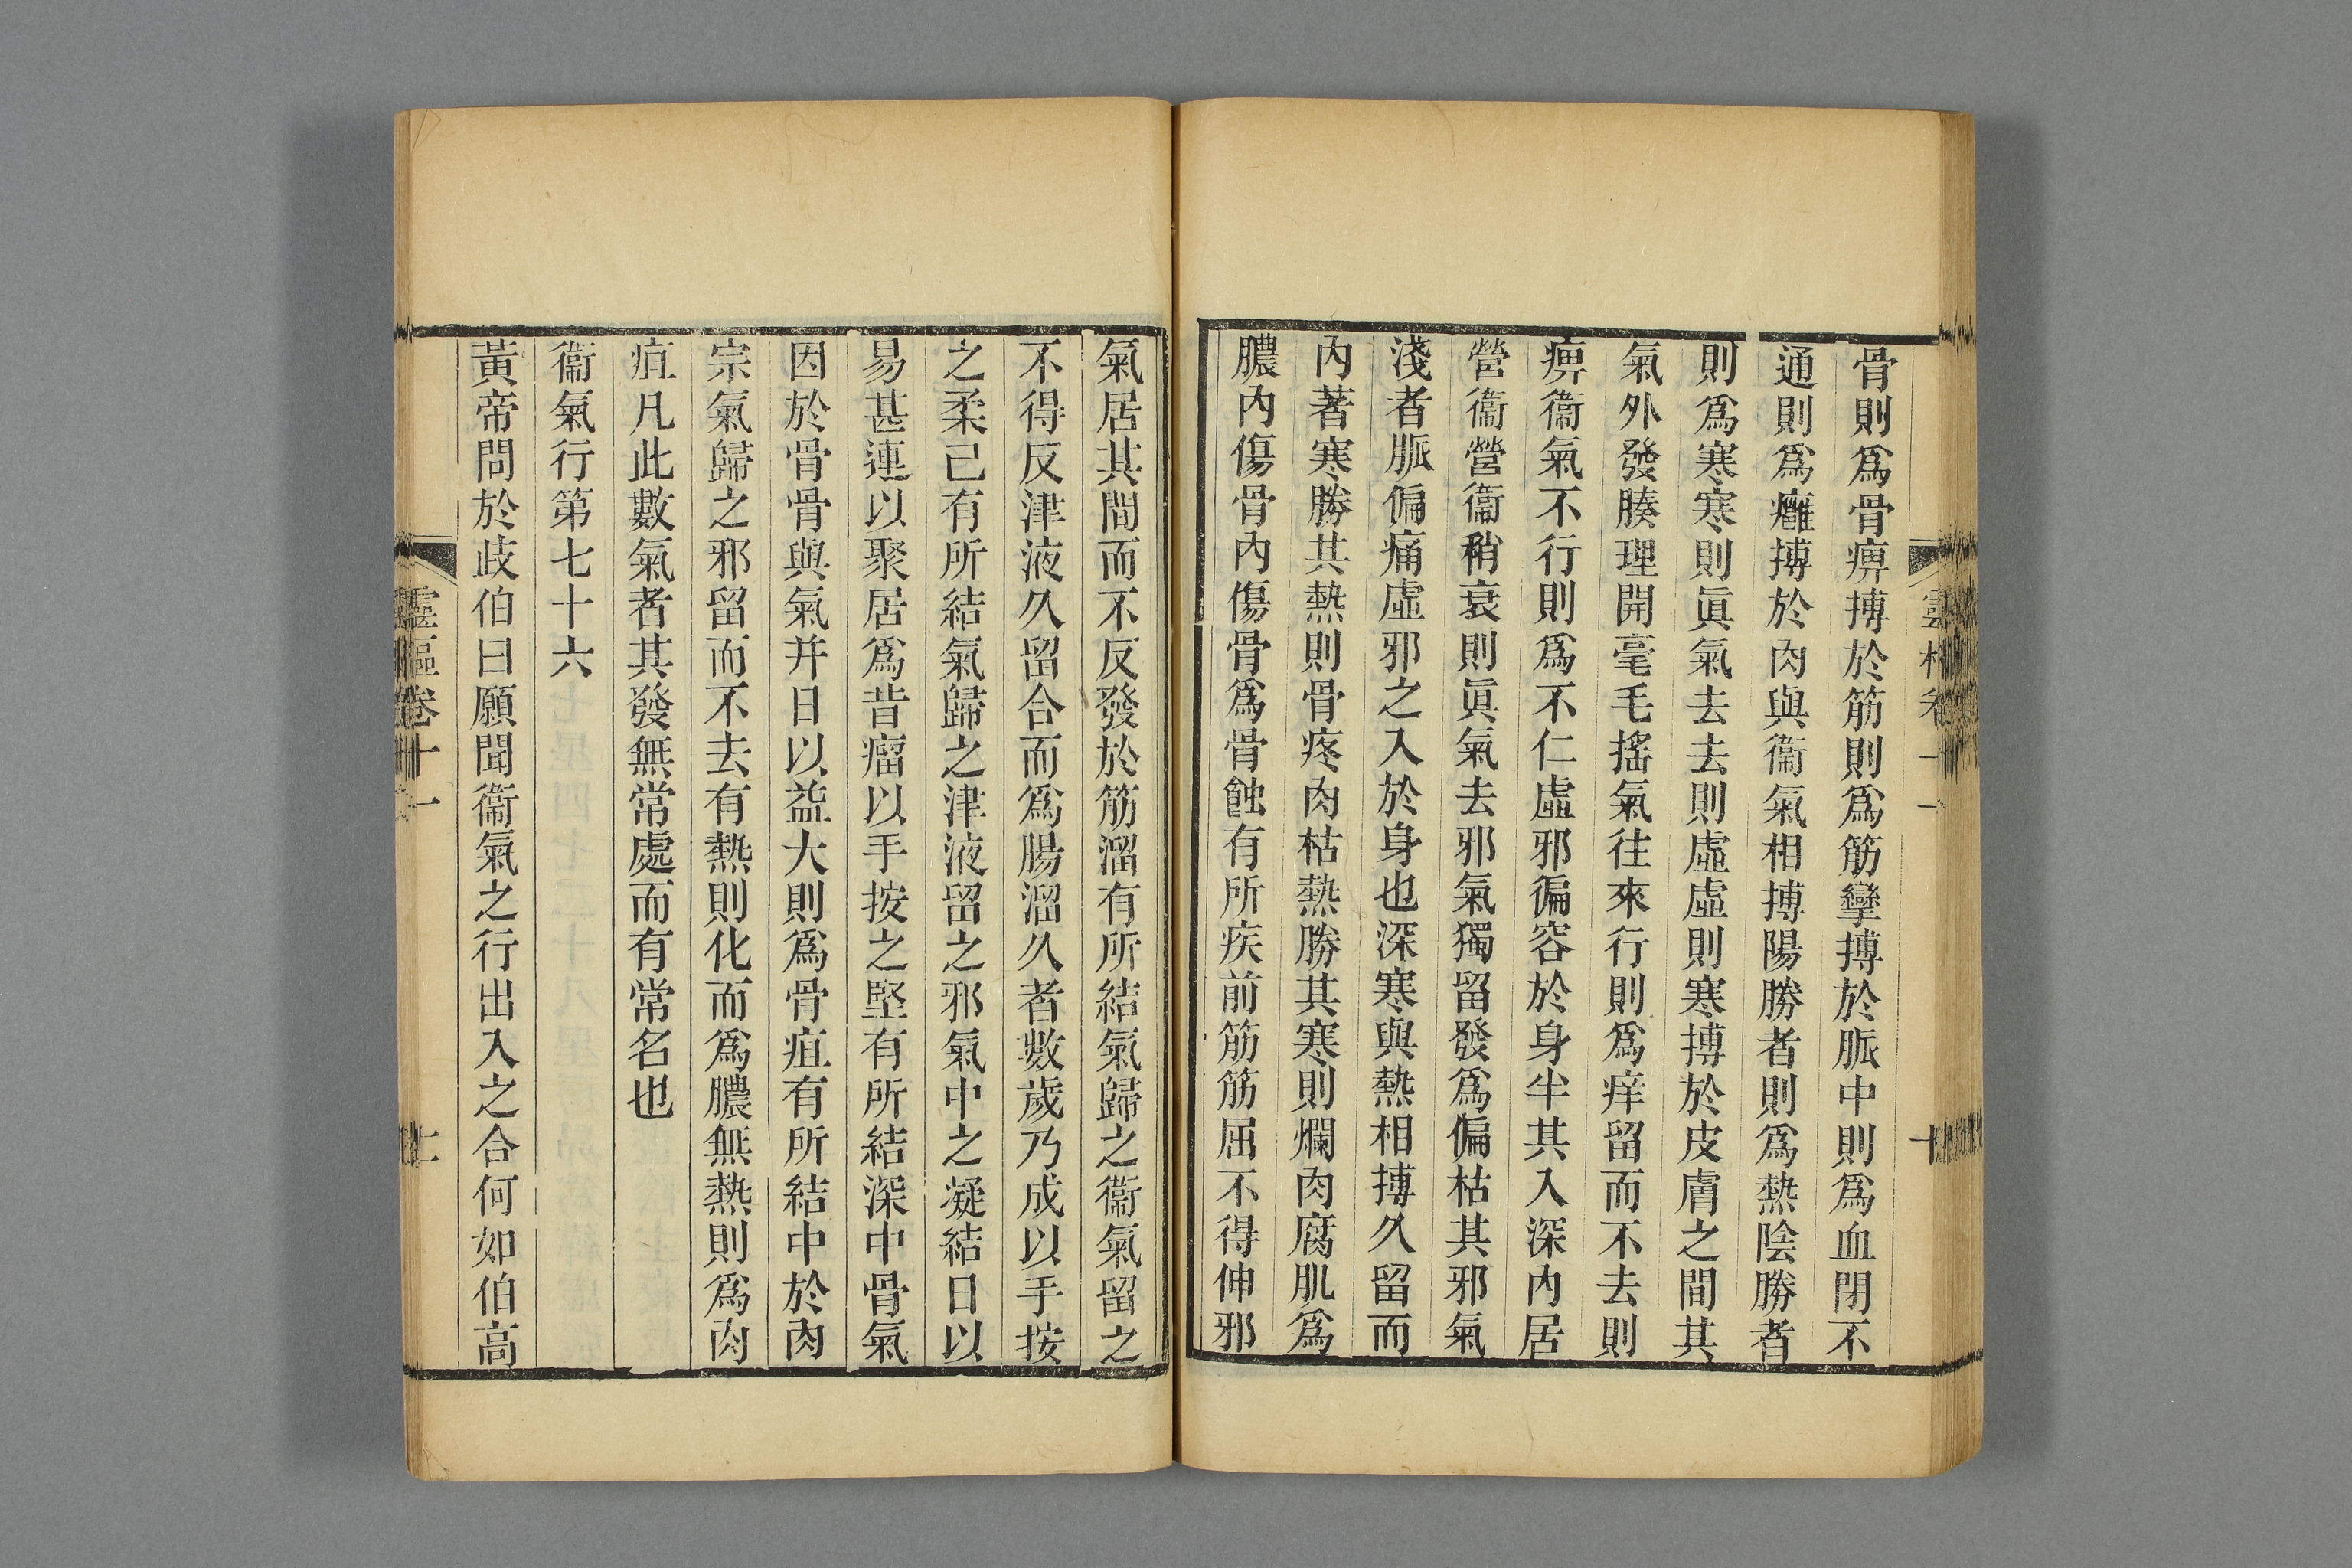 骨則爲骨痹搏於筋則爲筋攣搏於脈中則爲血閉不
通則爲癰搏於肉與衞氣相搏陽勝者則爲熱陰勝者
則爲寒寒則眞氣去去則虛虛則寒搏於皮膚之間其
氣外發腠理開毫毛搖氣往來行則爲痒留而不去則
痹衞氣不行則爲不仁虛邪徧容於身半其入深內居
營衞營衞稍衰則眞氣去邪氣獨留發爲偏枯其邪氣
淺者脈偏痛虛邪之入於身也深寒與熱相搏久留而
內著寒勝其熱則骨疼肉枯熱勝其寒則爛肉腐肌爲
膿內傷骨內傷骨爲骨蝕有所疾前筋筋屈不得伸邪
氣居其間而不反發於筋溜有所結氣歸之衞氣留之
不得反津液久留合而爲腸溜久者數歲乃成以手按
之柔已有所結氣歸之津液留之邪氣中之凝結日以
易甚連以聚居爲昔瘤以手按之堅有所結深中骨氣
因於骨骨與氣并日以益大則爲骨疽有所結中於肉
宗氣歸之邪留而不去有熱則化而爲膿無熱則爲肉
疽凡此數氣者其發無常處而有常名也
衞氣行第七十六
黃帝問於歧伯曰願聞衞氣之行出入之合何如伯高
靈樞卷十一
十一